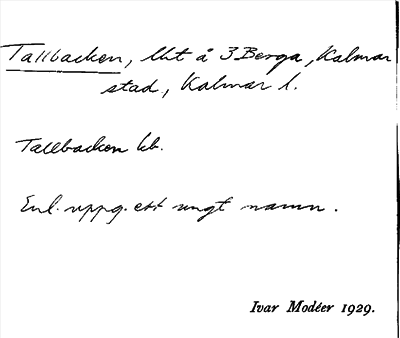 Tallbacken, lht å 3 Berga, Kalmar
stad, Kalmar l.
Tallbacken kb.
Enl. uppg. ett ungt namn.
Ivar Modéer 1929.